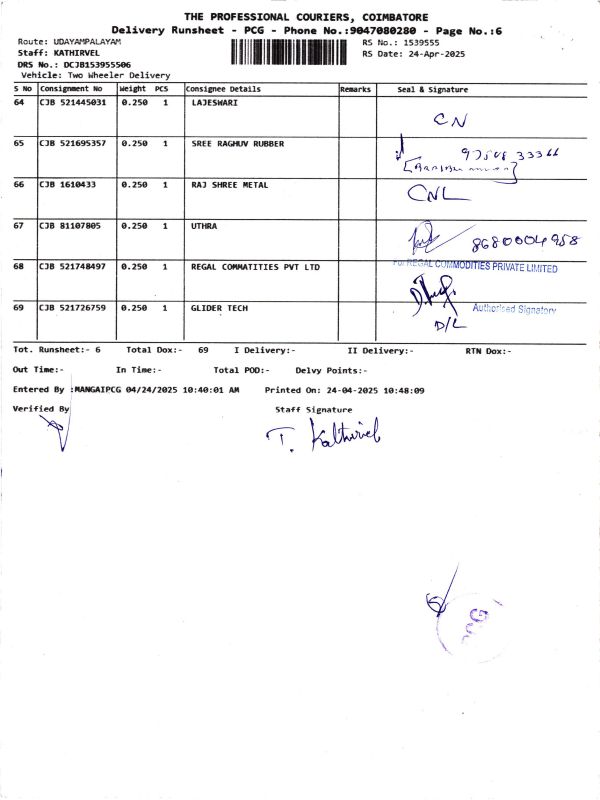 THE PROFESSIONAL COURIERS, COIMBATORE
Delivery Runsheet - PCG - Phone No.:9047080280 - Page No.:6
Route: UDAYAMPALAYAM
RS No.: 1539555
Staff: KATHIRVEL
RS Date: 24-Apr-2025
DRS No.: DCJB153955506
Vehicle: Two Wheeler Delivery
S No Consignment No Weight PCS Consignee Details Remarks Seal & Signature
64 CJB 521445031 0.250 1 LAJESWARI
CN
65 CJB 521695357 0.250 1 SREE RAGHUV RUBBER
66 CJB 1610433 0.250 1 RAJ SHREE METAL
CNL
67 CJB 81107805 0.250 1 UTHRA
8680004958
68 CJB 521748497 0.250 1 REGAL COMMATITIES PVT LTD
For REGAL COMMODITIES PRIVATE LIMITED
Authorised Signatory
69 CJB 521726759 0.250 1 GLIDER TECH
D/L
Tot. Runsheet:- 6 Total Dox:- 69 I Delivery:- II Delivery:- RTN Dox:-
Out Time:- In Time:- Total POD:- Delvy Points:-
Entered By :MANGAIPCG 04/24/2025 10:40:01 AM Printed On: 24-04-2025 10:48:09
Verified By Staff Signature
T. Kathirvel